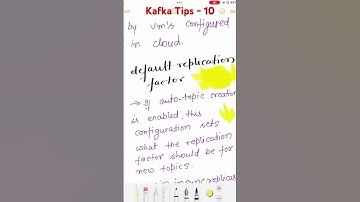 Kafka Tips - 10
by VM's configured
in cloud.
default.replication
factor
→ If auto-topic creation
is enabled, this
configuration sets
what the replication
factor should be for
new topics.